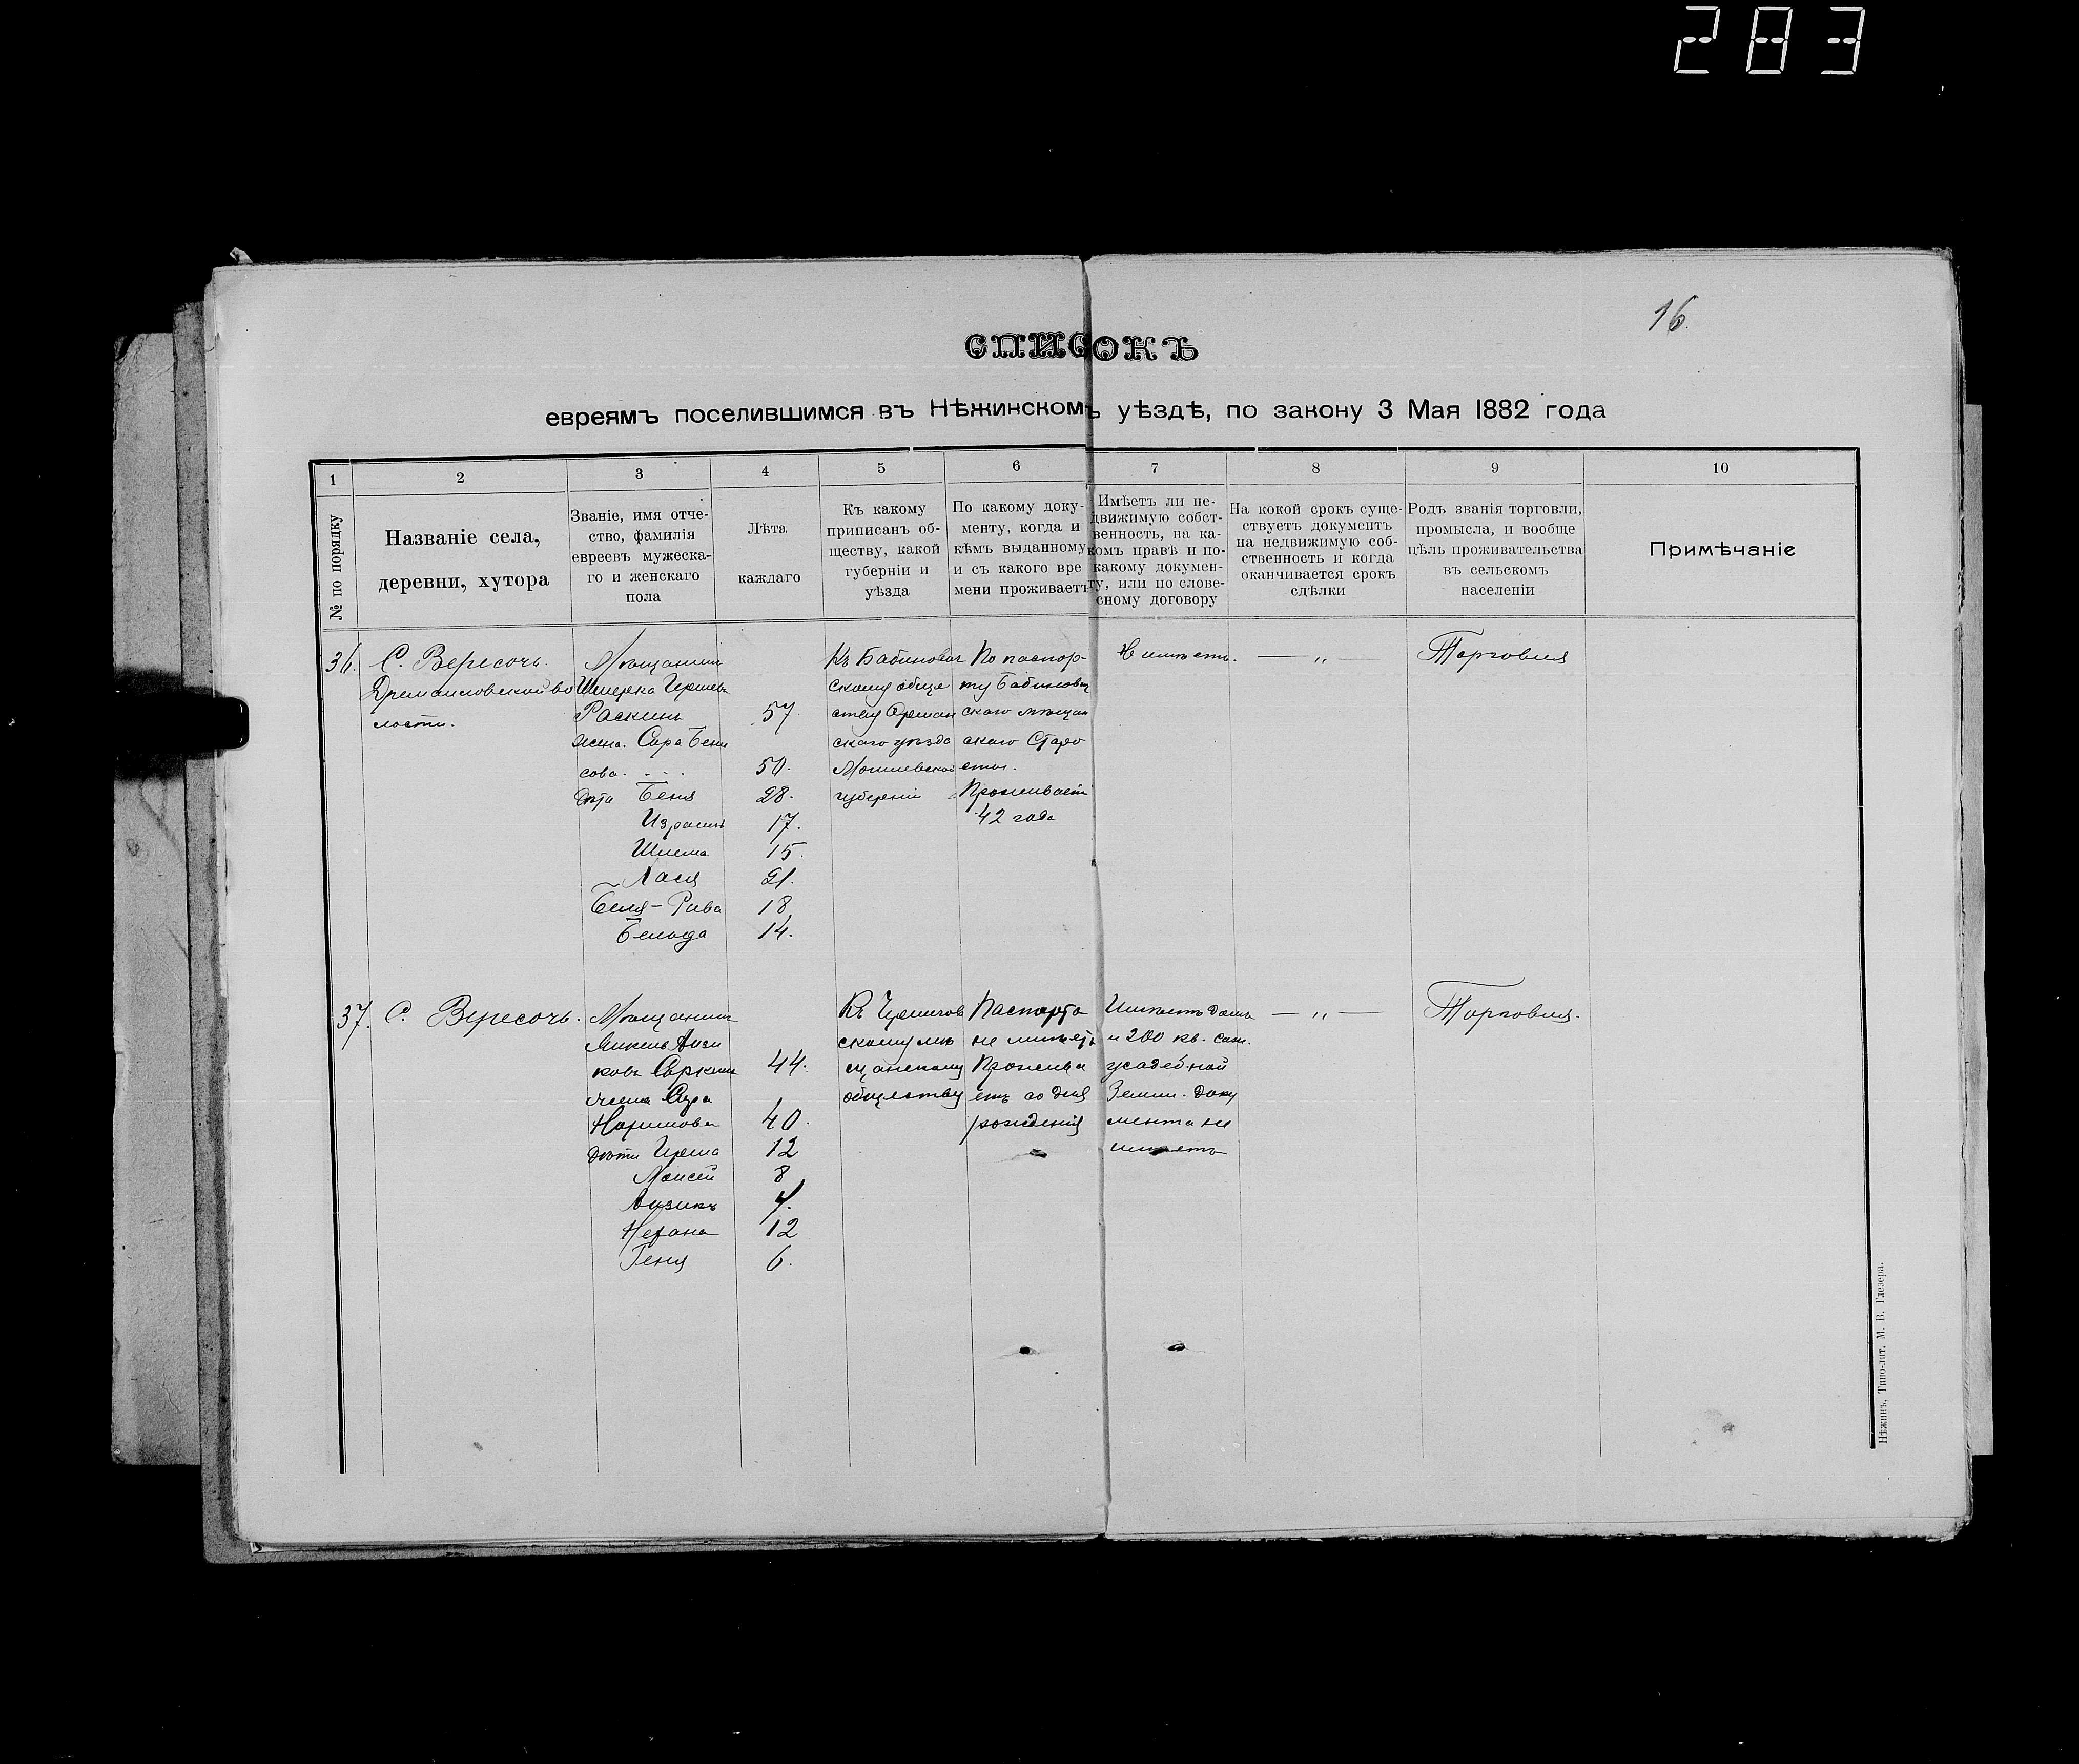 283
16.
СПИСОКЪ
евреямъ поселившимся въ Нѣжинскомъ уѣздѣ, по закону 3 Мая 1882 года
1
2
3
4
5
6
7
8
9
10
№ по порядку
Названіе села,
деревни, хутора
Званіе, имя отче-
ство, фамилія
евреевъ мужеска-
го и женскаго
пола
Лѣта
каждаго
Къ какому
приписанъ об-
ществу, какой
губерніи и
уѣзда
По какому доку-
менту, когда и
кѣмъ выданному
и съ какого вре
мени проживаетъ
Имѣетъ ли не-
движимую собст-
венность, на ка-
комъ правѣ и по-
какому докумен-
ту, или по слове-
сному договору
На кокой срокъ суще-
ствуетъ документъ
на недвижимую соб-
ственность и когда
оканчивается срокъ
сдѣлки
Родъ званія торговли,
промысла, и вообще
цѣль проживательства
въ сельскомъ
населеніи
Примѣчаніе
36.
С. Вересочь.
во
лости.
Мѣщанинъ
Раскинъ 57.
жена. Сара
сова. 50.
дѣти Беня 28.
Израиль 17.
Шлема 15.
Хася 21.
Беля-Рива 18
14.
Къ Бабинович
скому обще
ству Оршан
скаго уѣзда
Могилевской
губерніи
По паспор-
ту Бабинович
скаго мѣщан
скаго Старо
сты.
Проживаетъ
42 года
Не имѣетъ.
— „ —
Торговля
37.
С. Вересочь.
Мѣщанинъ
Айзи
ковъ Соркинъ 44.
жена Сора
40.
дѣти 12
Моисей 8
Айзикъ 4.
12
Геня 6.
Къ Чернигов
скому мѣ
щанскому
обществу
Паспорта
не имѣетъ
Прожива
етъ со дня
рожденія
Имѣетъ домъ
и 200 кв. саж.
усадебной
Земли. Доку
мента не
имѣетъ
— „ —
Торговля.
Нѣжинъ, Типо-лит. М. В. Глезера.